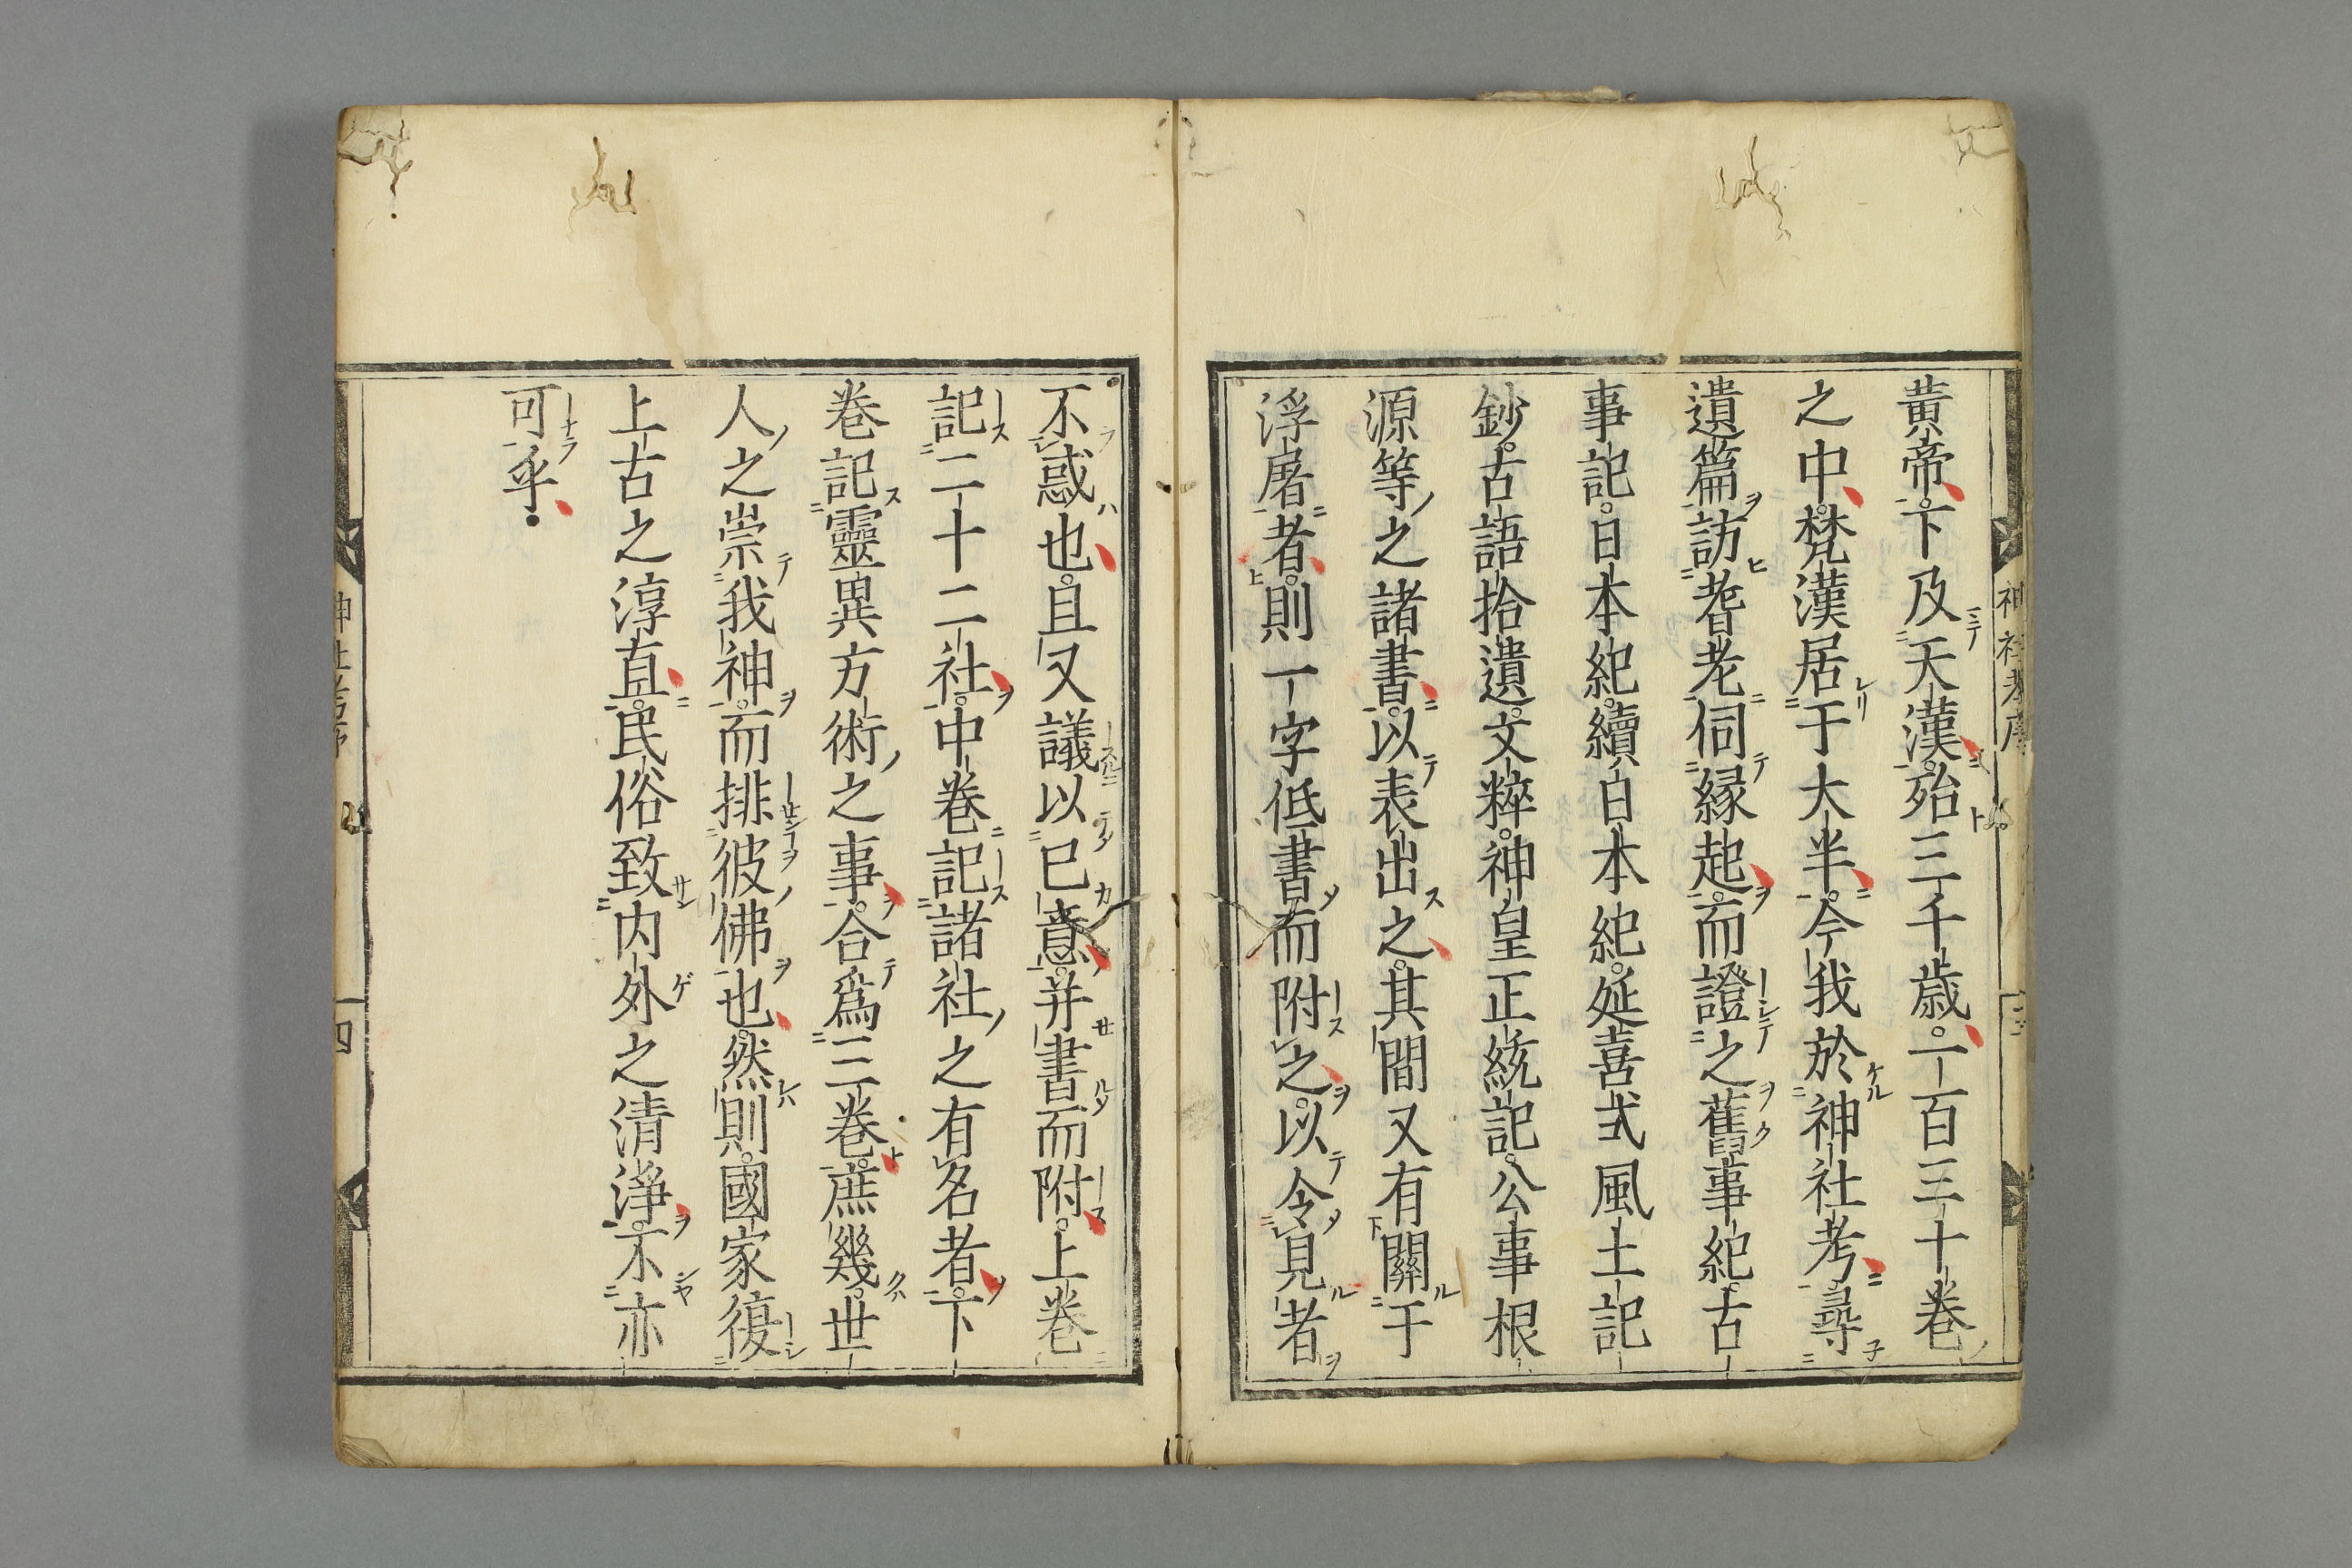 黄帝下及天漢殆三千歳一百三十巻
之中梵漢居于大半今我於神社考尋
遺篇訪耆老伺縁起而證之舊事紀古
事記日本紀續日本紀延喜式風土記
鈔古語拾遺文粹神皇正統記公事根
源等之諸書以表出之其間又有關于
浮屠者則一字低書而附之以令見者
不惑也且又議以已意并書而附上巻
記二十二社中巻記諸社之有名者下
巻記靈異方術之事合爲三巻庶幾世
人之崇我神而排彼佛也然則國家復
上古之淳直民俗致内外之清淨不亦
可乎
四